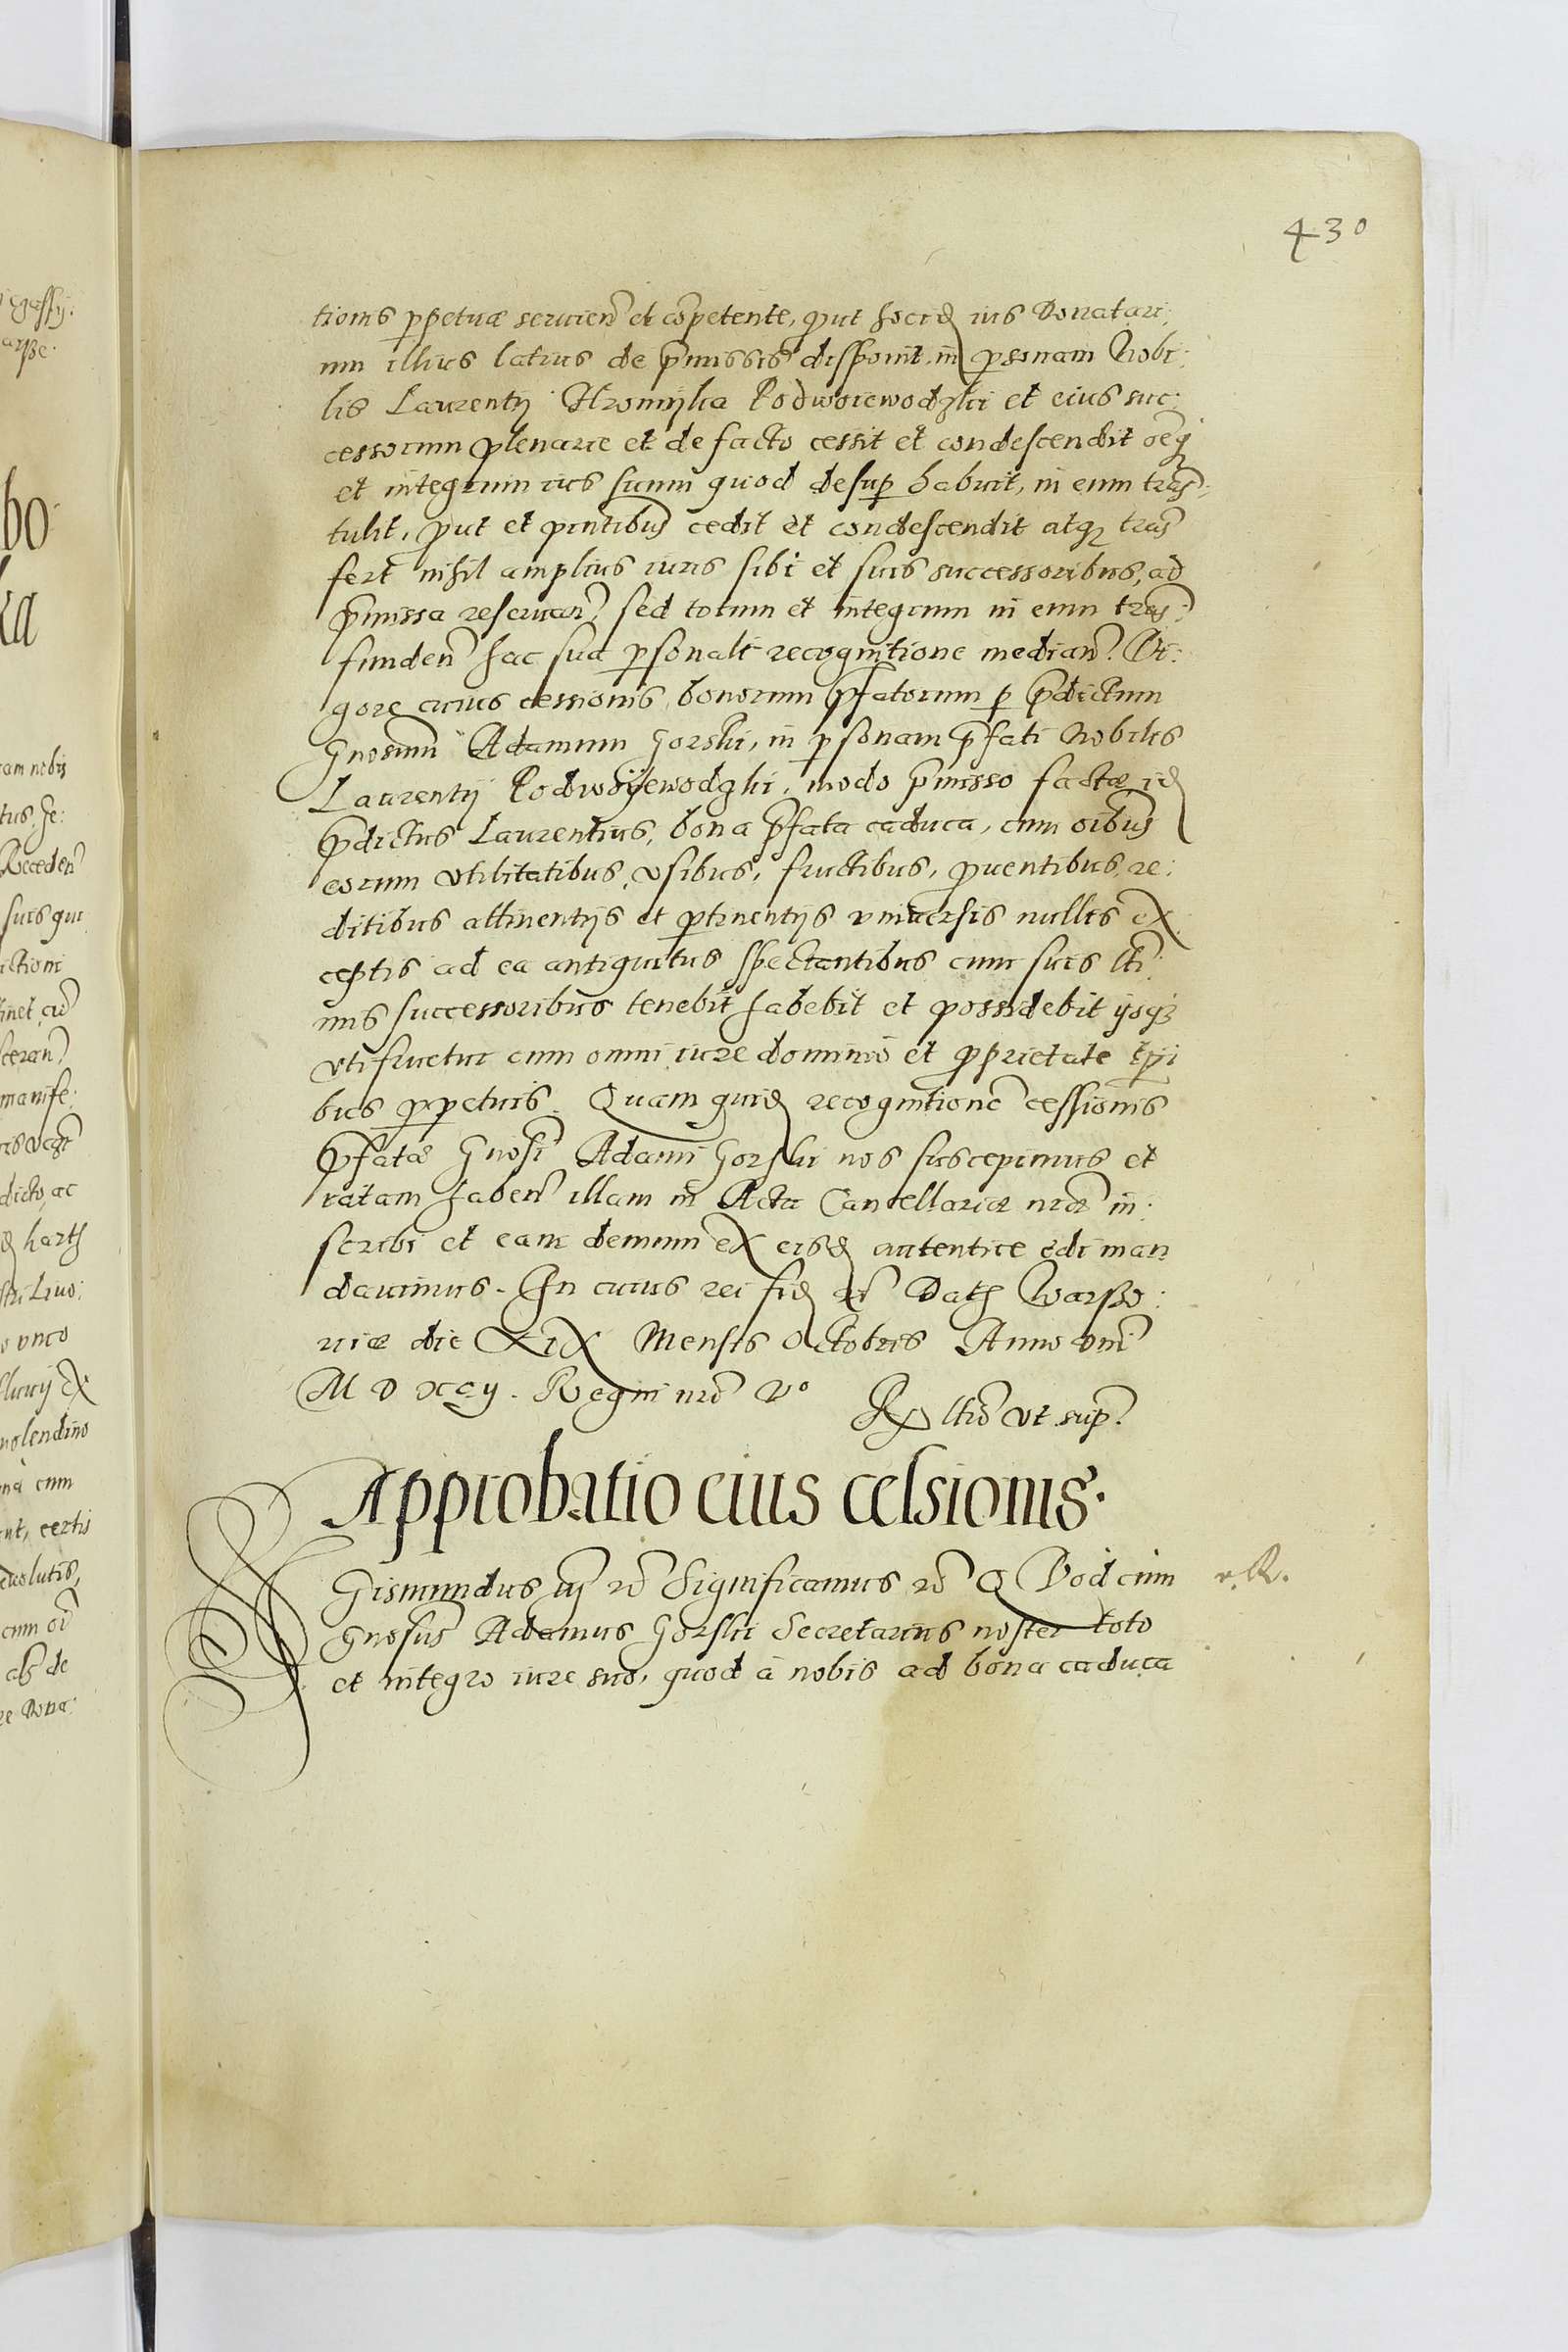 430
tionis ppetuæ seruien et cõpetente, put hocid ius Donatari:
um illius latius de pmissis disponit, in psonam Nobi:
lis Laurentij Hromijka Podwoiewodzki et eius suc:
cessorum plenarie et de facto cessit et condescendit oẽq
et integrum ius suum quod desup habuit, in eum trãs:
tulit, put et pntibus cedit et condescendit atq trãs
fert nihil amplius iuris sibi et suis successoribus, ad
pmissa reseruan, sed totum et integrum in eum trãs:
funden hac sua psonali recognitione median. Vi:
gore cuius cessionis bonorum pfatorum p pdictum
Gnosum Adamum Gorski, in psonam pfati Nobilis
Laurentij Podwoÿewodzki, modo pmisso factæ, id
pdictus Laurentius, bona pfata caduca, cum oibus
eorum vtilitatibus, vsibus, fructibus, puentibus, re:
ditibus attinentijs et ptinentijs vniuersis nullis ex
ceptis ad ea antiquitus spectantibus cum suis lti:
mis successoribus tenebit habebit et possidebit ijsq
vtifruetur cum omni iure dominio et proprietate tpi
bus ppetuis. Quam quid recognitionẽ cessionis
pfatæ Gnosi Adami Gorski nos suscepimus et
ratam haben illam in Acta Cancellariæ nræ in:
scribi et eam demum ex eisd autentice edi man
dauimus. In cuius rei fid Dat Warsso:
uiæ die XIX Mensis Octobris Anno Dni
M D XCij. Regni nri Vº
Rx ltio vt sup.
Approbatio eius celsionis.
Gismundus iij rc Significamus rc Q Vod cum
v. R.
Gnosus Adamus Gorski Secretarius noster toto
et integro iure suo, quod à nobis ad bona caduca